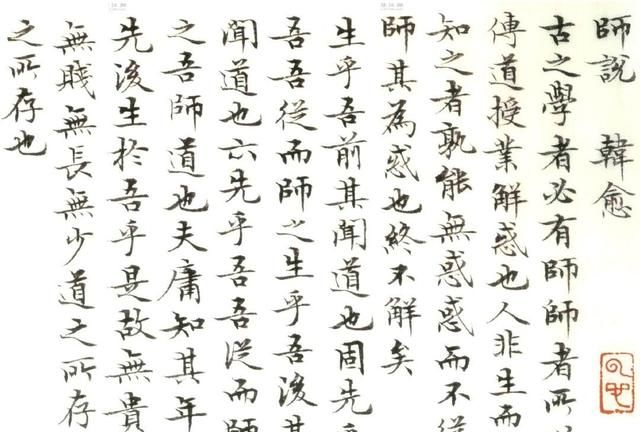 師說 韓愈
古之學者必有師師者所
傳道授業解惑也人非生而
知之者孰能無惑惑而不從
師其為惑也終不解矣
生乎吾前其聞道也固先乎
吾吾從而師之生乎吾後其
聞道也亦先乎吾吾從而師
之吾師道也夫庸知其年
先後生於吾乎是故無貴
無賤無長無少道之所存
之所存也